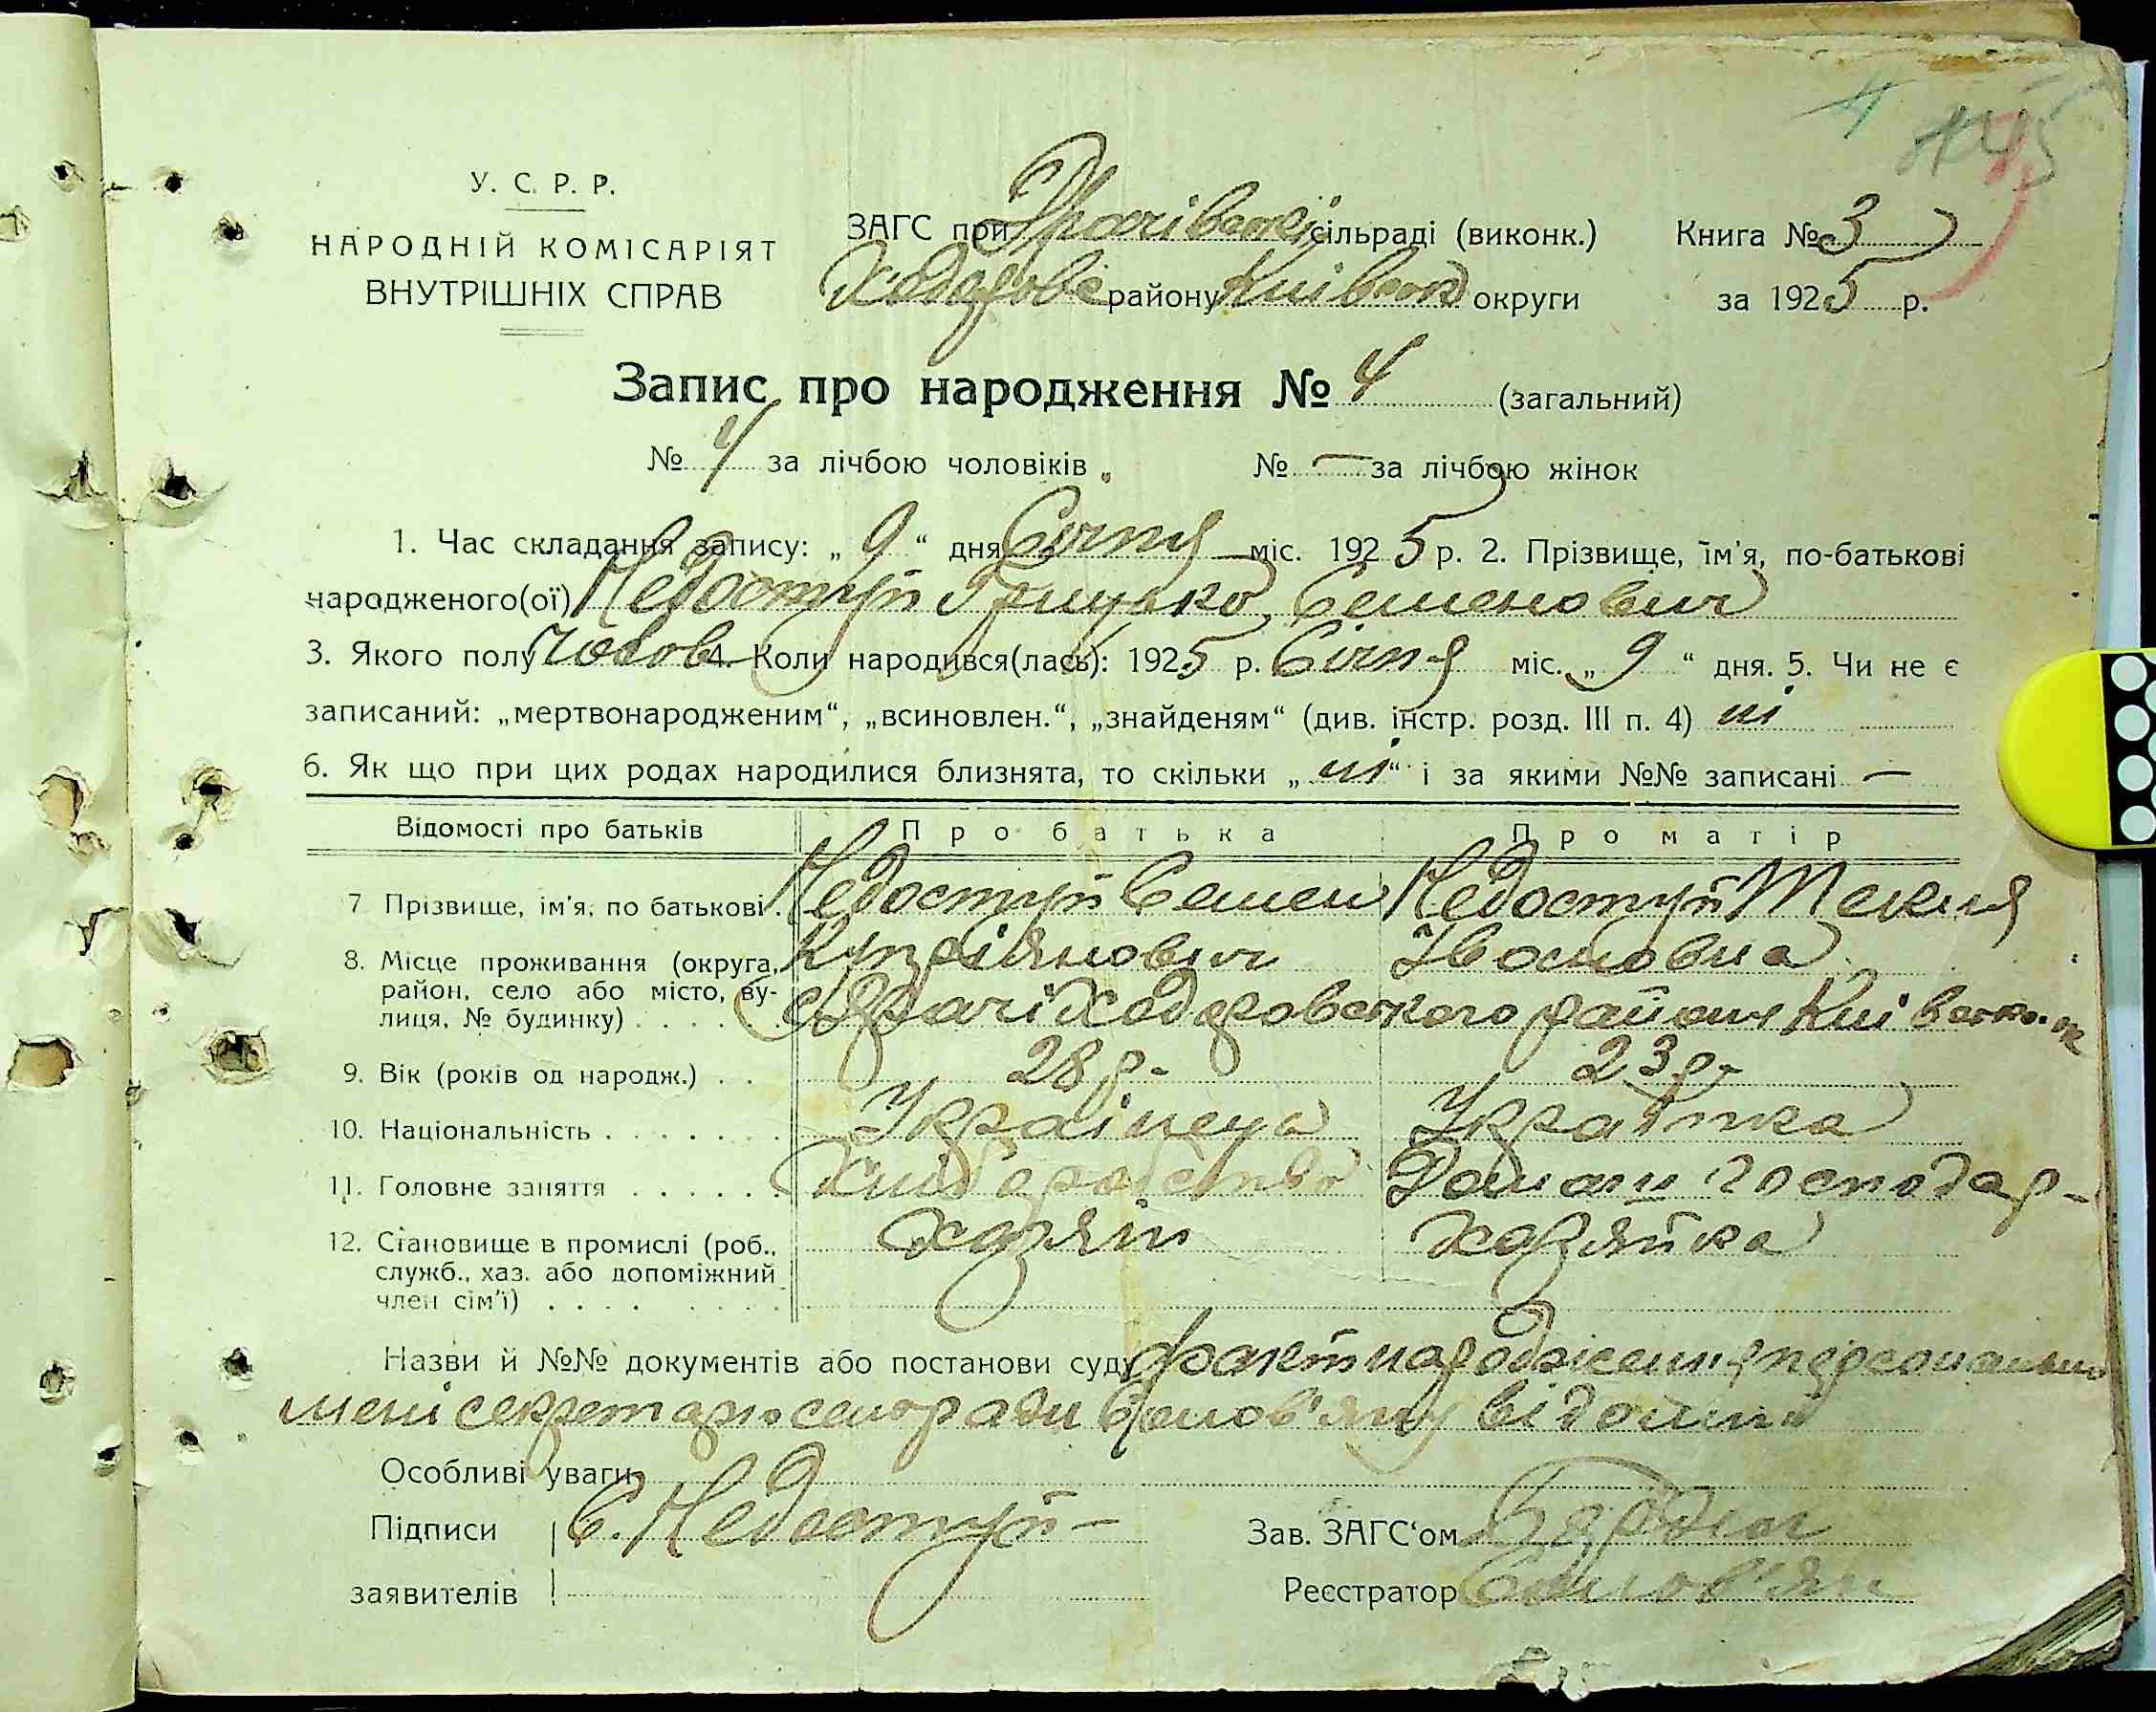 У. С. Р. Р.
НАРОДНІЙ КОМІСАРІЯТ
ВНУТРІШНІХ СПРАВ
ЗАГС при сільраді (виконк.) Книга № 3
району Київськ округи за 1925 р.
Запис про народження № 4 (загальний)
№ 4 за лічбою чоловіків № — за лічбою жінок
1. Час складання запису: „ 9 “ дня Січня міс. 1925 р. 2. Прізвище, їм'я, по-батькові
народженого(ої) Недоступ Грицько Семенович
3. Якого полу Чолов 4. Коли народився(лась): 1925 р. Січня міс. „ 9 “ дня. 5. Чи не є
записаний: „мертвонародженим“, „всиновлен.“, „знайденям“ (див. інстр. розд. III п. 4) ні
6. Як що при цих родах народилися близнята, то скільки „ ні “ і за якими №№ записані —
Відомості про батьків Про батька Про матір
7 Прізвище, ім'я, по батькові . Недоступ Семен Недоступ Текля
Купріянович Івановна
8. Місце проживання (округа, район, село або місто, вулиця, № будинку) . . . . с Ходоровського району Київськ. ок
9. Вік (років од народж.) . . 28 р. 23 р.
10. Національність . . . . . . . Українець Українка
11. Головне заняття . . . . . . Хліборобство Домашн господар-
12. Становище в промислі (роб., хазяін хазяйка
служб., хаз. або допоміжний
член сім'ї) . . . .
Назви й №№ документів або постанови суду факт народження персонально
мені секретарю сельради Солов'яну відомий
Особливі уваги
Підписи С. Недоступ — Зав. ЗАГС‘ом
заявителів Реєстратор Солов'ян